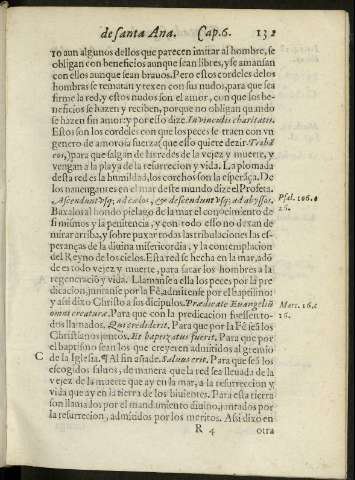 de santa Ana. Cap. 6. 132
to aun algunos dellos que parecen imitar al hombre, se
obligan con beneficios aunque sean libres, y se amansan
con ellos aunque sean brauos. Pero estos cordeles de los
hombras se rematan y texen con sus nudos, para que sea
firme la red, y estos nudos son el amor, con que los be-
neficios se hazen y reciben, porque no obligan quando
se hazen sin amor: y por esso dize. In vinculis charitatis.
Estos son los cordeles con que los peces se traen con vn
genero de amorosa fuerza; que esso quiere dezir. Trahā
eos, para que salgan de las redes de la vejez y muerte, y
vengan a la playa de la resurrecion y vida. La plomada
desta red es la humildad, los corchos son la esperāça. De
los nauegantes en el mar deste mundo dize el Profeta.
Ascendunt vsq; ad cælos, & descendunt vsq; ad abyssos.
Psal. 106. e
26.
Baxalos al hondo pielago de la mar el conocimiento de
si mismos y la penitencia, y con todo esso no dexan de
mirar arriba, y sobre puxar todas las tribulaciones las es-
peranças de la diuina misericordia, y la contemplacion
del Reyno de los cielos. Esta red se hecha en la mar, adō
de es todo vejez y muerte, para sacar los hombres a la
regeneracion y vida. Llamanse a ella los peces por la pre
dicacion, juntanse por la Fè, admitense por el baptismo:
y assi dixo Christo a sus dicipulos. Prædicate Euangeliū
Marc. 16. c
16.
omni creaturæ. Para que con la predicacion fuessen to-
dos llamados. Qui crediderit. Para que por la Fê seā los
Christianos juntos. Et baptizatus fuerit. Para que por
el baptismo sean los que creyeren admitidos al gremio
C
de la Iglesia. ¶ Al fin añade. Saluus erit. Para que seā los
escogidos saluos, de manera que la red sea lleuada de la
vejez de la muerte que ay en la mar, a la resurreccion y
vida que ay en la tierra de los biuientes. Para esta tierra
son llamados por el mandamiento diuino, juntados por
la resurrecion, admitidos por los meritos. Assi dixo en
R 4 otra